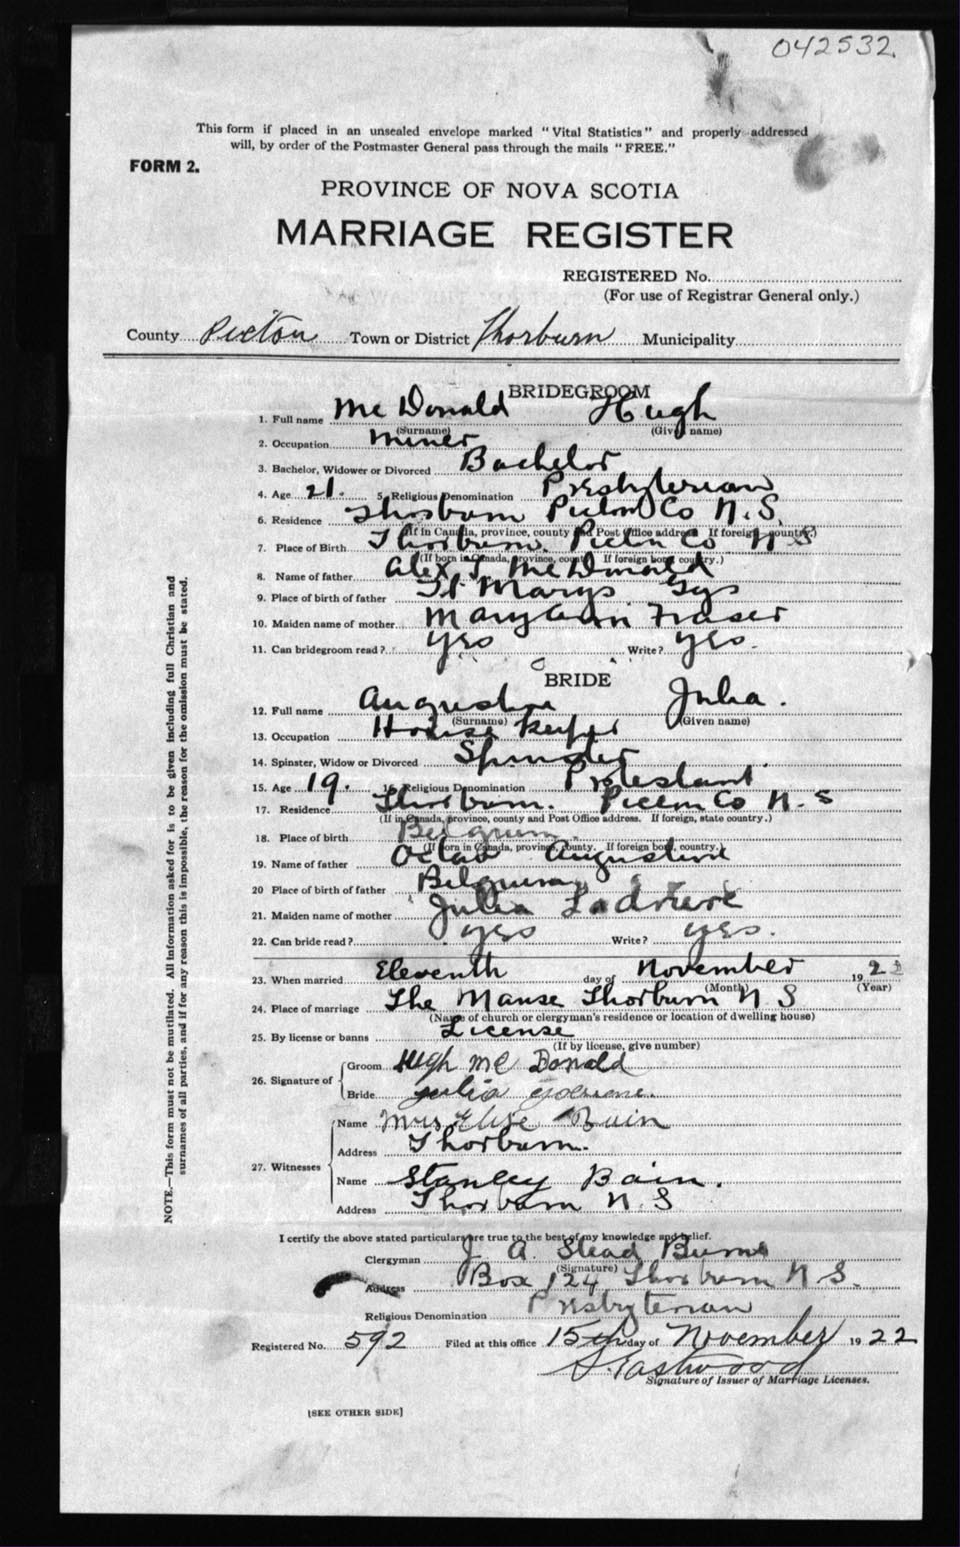 042532
This form if placed in an unsealed envelope marked "Vital Statistics" and properly addressed
will, by order of the Postmaster General pass through the mails "FREE."
FORM 2.
PROVINCE OF NOVA SCOTIA
MARRIAGE REGISTER
REGISTERED No.
(For use of Registrar General only.)
County Pictou Town or District Thorburn Municipality
BRIDEGROOM
1. Full name McDonald Hugh
(Surname) (Given name)
2. Occupation Miner
3. Bachelor, Widower or Divorced Bachelor
4. Age 21. 5. Religious Denomination Presbyterian
6. Residence Thorburn Pictou Co N.S.
(If in Canada, province, county and Post Office address. If foreign country.)
7. Place of Birth Thorburn. Pictou Co N S
(If born in Canada, province, county. If foreign born, country.)
8. Name of father Alex J McDonald
9. Place of birth of father St Marys Guys
10. Maiden name of mother Mary Ann Fraser
11. Can bridegroom read? yes Write? yes.
BRIDE
12. Full name Augustine Julia.
(Surname) (Given name)
13. Occupation House keeper
14. Spinster, Widow or Divorced Spinster
15. Age 19. 16. Religious Denomination Protestant
17. Residence Thorburn. Pictou Co N.S
(If in Canada, province, county and Post Office address. If foreign, state country.)
18. Place of birth Belgium.
(If born in Canada, province, county. If foreign born, country.)
19. Name of father Octav Augustine
20 Place of birth of father Belgium
21. Maiden name of mother Julia
22. Can bride read? yes Write? yes.
23. When married Eleventh day of November 1922
(Month) (Year)
24. Place of marriage The Manse Thorburn N S
(Name of church or clergyman's residence or location of dwelling house)
25. By license or banns License
(If by license, give number)
26. Signature of Groom Hugh McDonald
Bride Julia
27. Witnesses Name Mrs Elise Bain
Address Thorburn.
Name Stanley Bain.
Address Thorburn N. S
I certify the above stated particulars are true to the best of my knowledge and belief.
Clergyman J. A. Stead Burns
(Signature)
Address Box 124 Thorburn N S.
Religious Denomination Presbyterian
Registered No. 592 Filed at this office 15th day of November 1922
S. Eastwood
Signature of Issuer of Marriage Licenses.
[SEE OTHER SIDE]
NOTE.—This form must not be mutilated. All information asked for is to be given including full Christian and
surnames of all parties, and if for any reason this is impossible, the reason for the omission must be stated.